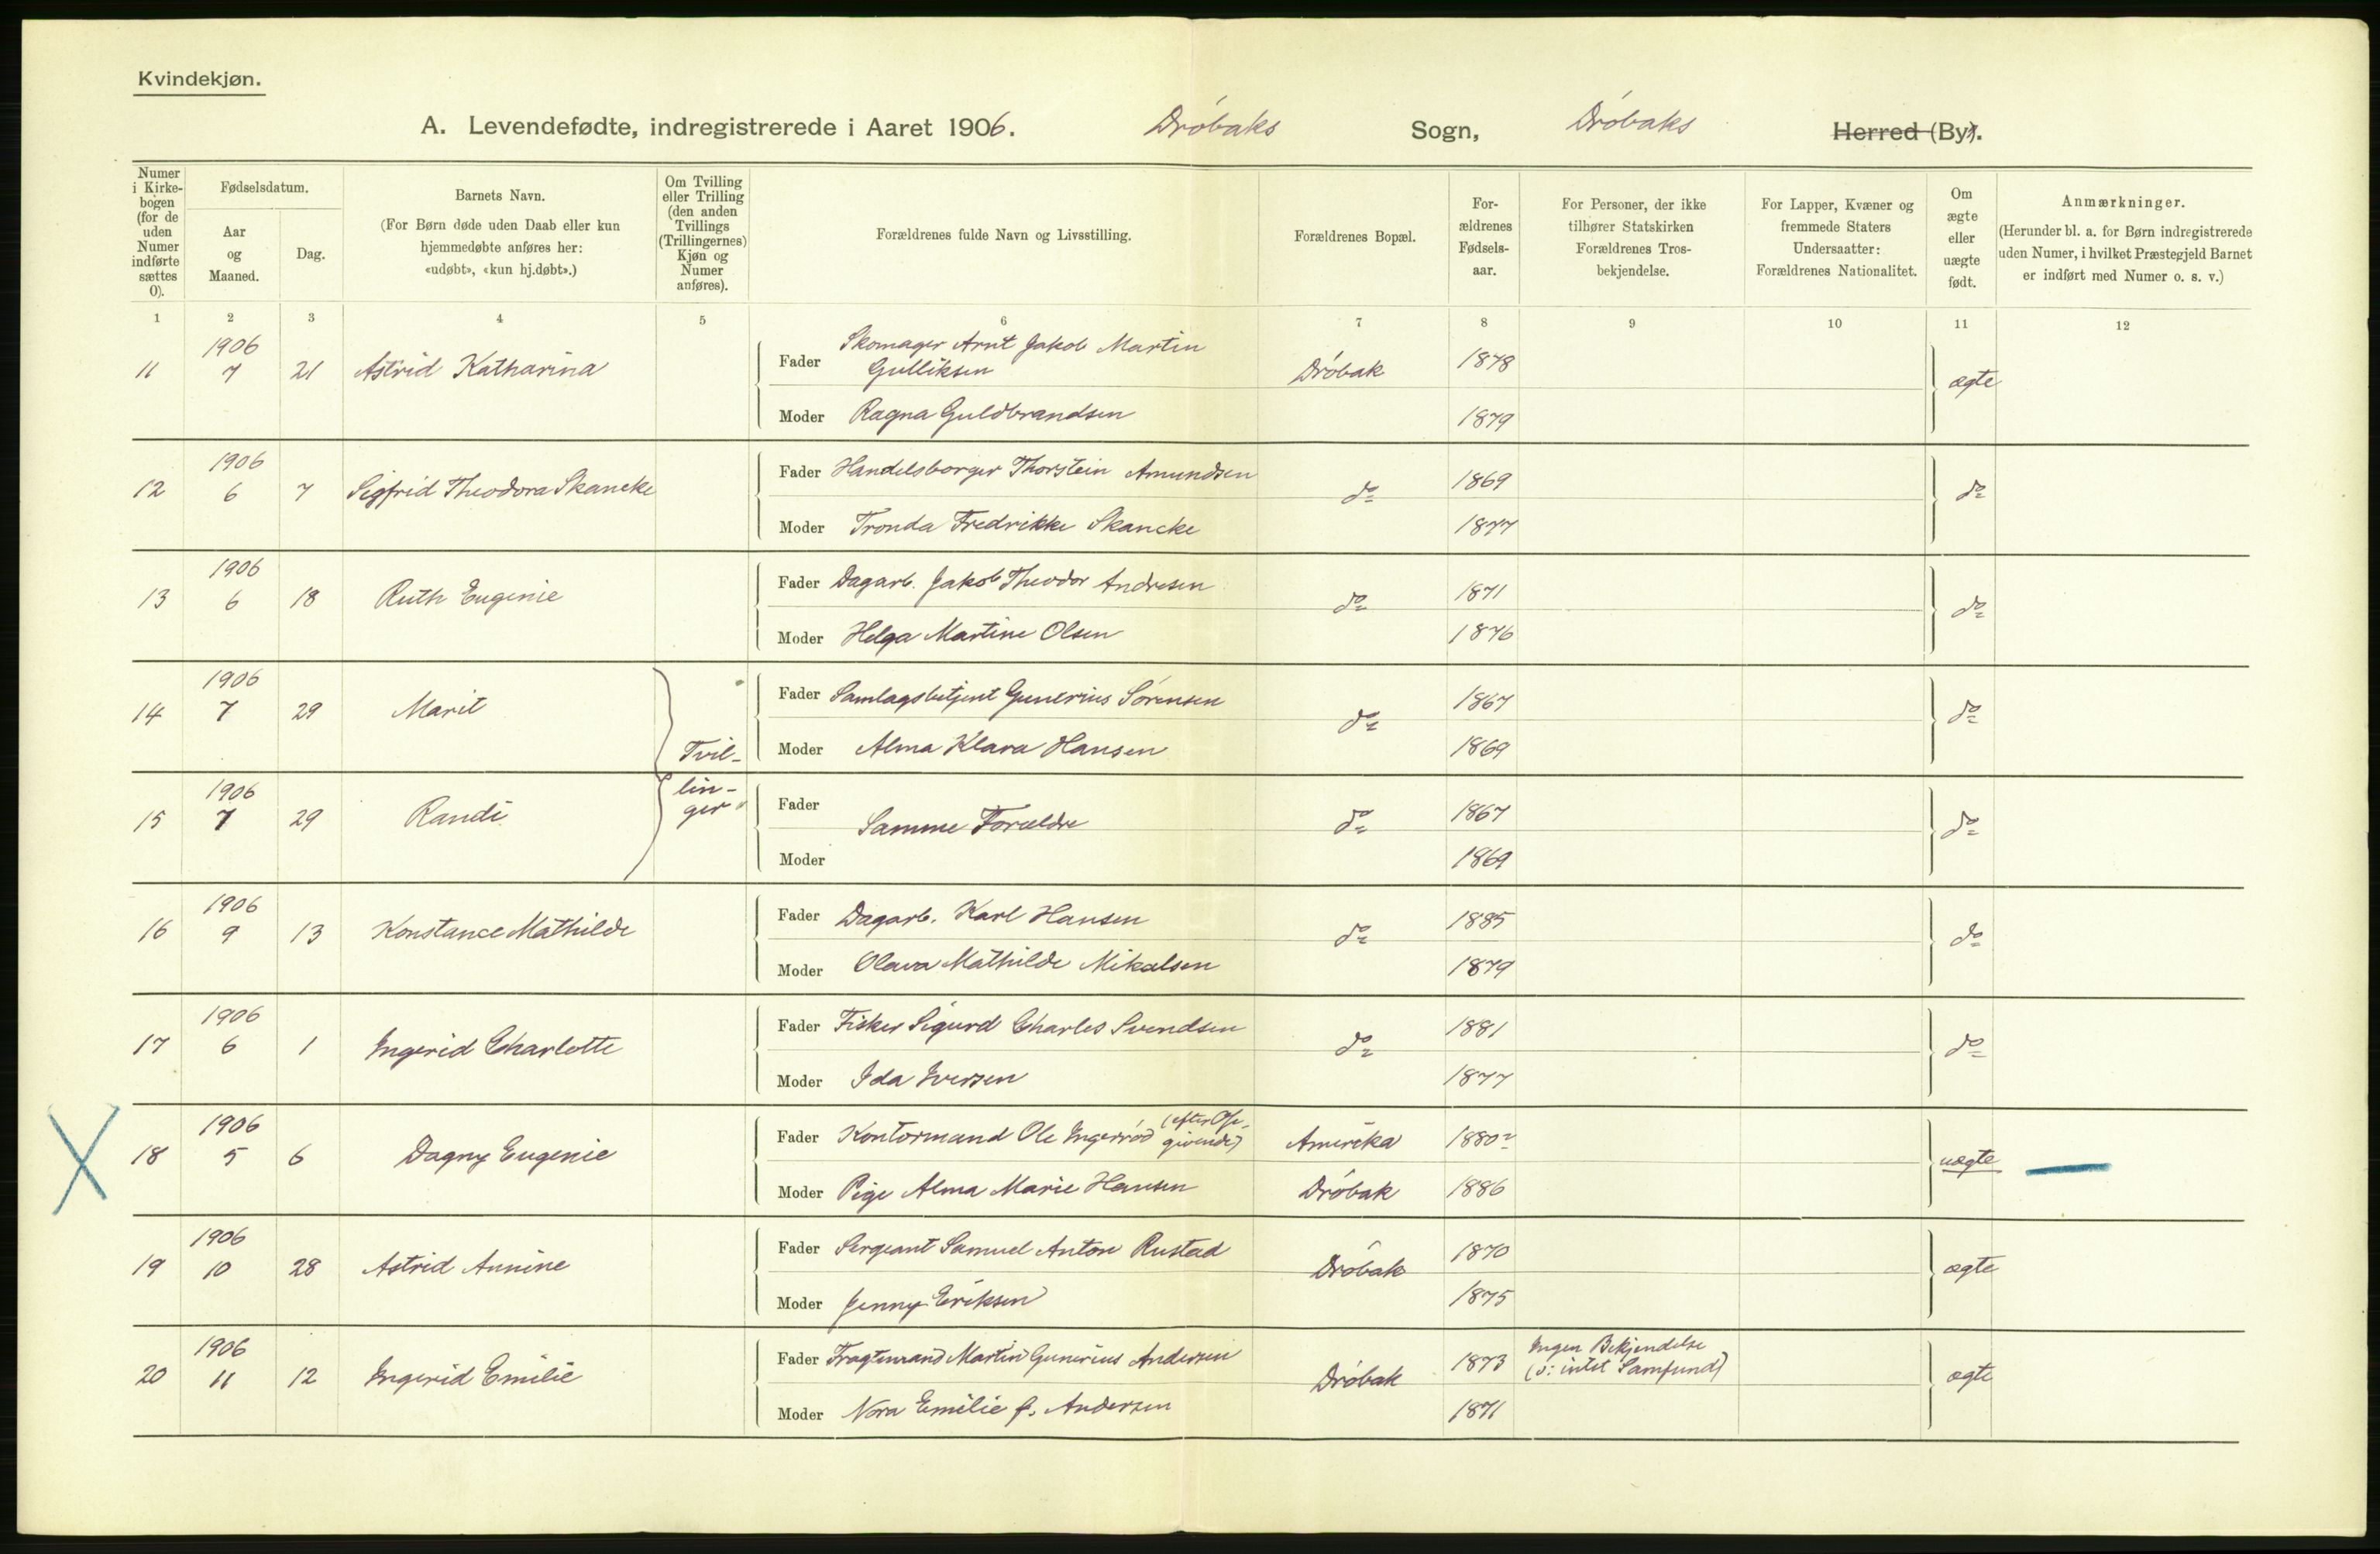 Kvindekjøn.
A. Levendefødte, indregistrerede i Aaret 1906. Drøbaks Sogn, Drøbaks Herred (By).
Numer i Kirke-bogen (for de uden Numer indførte sættes 0).
Fødselsdatum.
Aar og Maaned.
Dag.
Barnets Navn.
(For Børn døde uden Daab eller kun hjemmedøbte anføres her: «udøbt», «kun hj.døbt».)
Om Tvilling eller Trilling (den anden Tvillings (Trillingernes) Kjøn og Numer anføres).
Forældrenes fulde Navn og Livsstilling.
Forældrenes Bopæl.
For-ældrenes Fødsels-aar.
For Personer, der ikke tilhører Statskirken Forældrenes Tros-bekjendelse.
For Lapper, Kvæner og fremmede Staters Undersaatter: Forældrenes Nationalitet.
Om ægte eller uægte født.
Anmærkninger.
(Herunder bl. a. for Børn indregistrerede uden Numer, i hvilket Præstegjeld Barnet er indført med Numer o. s. v.)
1 2 3 4 5 6 7 8 9 10 11 12
11 1906 7 21 Astrid Katharina Fader Skomager Arnt Jakob Martin Gulliksen Drøbak 1878 ægte
Moder Ragna Guldbrandsen 1879
12 1906 6 7 Sigfrid Theodora Skancke Fader Handelsborger Thorstein Amundsen do 1869 do
Moder Tronda Fredrikke Skancke 1877
13 1906 6 18 Ruth Eugenie Fader Dagarb. Jakob Theodor Andresen do 1871 do
Moder Helga Martine Olsen 1876
14 1906 7 29 Marit Tvil- Fader Samlagsbetjent Gunerius Sørensen do 1867 do
Moder Alma Klara Hansen 1869
15 1906 7 29 Randi lin-ger Fader Samme Forældre do 1867 do
Moder 1869
16 1906 9 13 Konstance Mathilde Fader Dagarb. Karl Hansen do 1885 do
Moder Olava Mathilde Mikalsen 1879
17 1906 6 1 Ingerid Charlotte Fader Fisker Sigurd Charles Svendsen do 1881 do
Moder Ida Iversen 1877
18 1906 5 6 Dagny Eugenie Fader Kontormand Ole Ingerød (efter Opgivende) Amerika 1880 uægte
Moder Pige Alma Marie Hansen Drøbak 1886
19 1906 10 28 Astrid Annine Fader Sergeant Samuel Anton Rustad Drøbak 1870 ægte
Moder Jenny Eriksen 1875
20 1906 11 12 Ingerid Emilie Fader Fragtemand Martin Gunerius Andersen Drøbak 1873 Ingen Bekjendelse (ɔ: intet Samfund) ægte
Moder Nora Emilie f. Andersen 1871